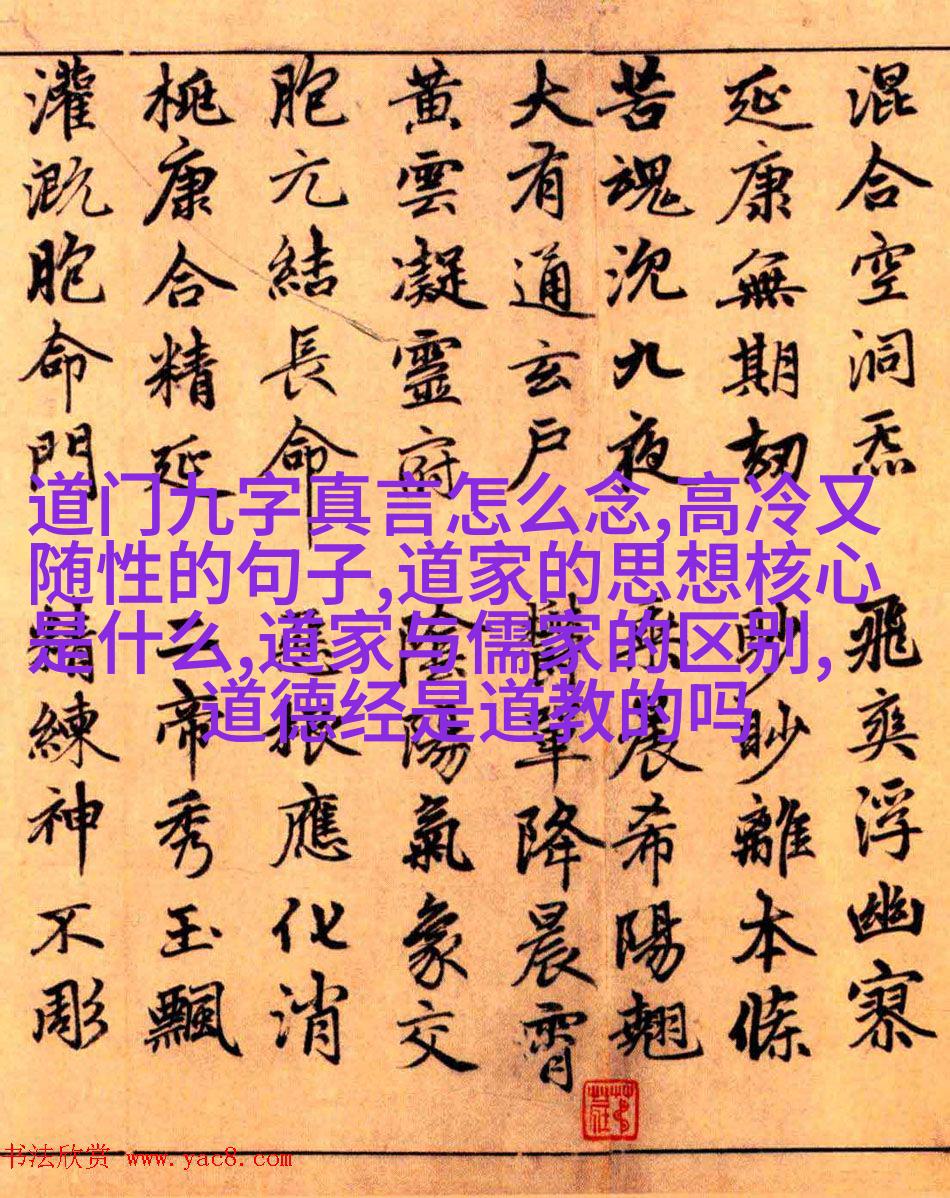 混合空洞炁 飛爽浮幽寥
延康無期劫 眇眇離本條
苦魂沉九夜 乘晨希陽翹
大有通玄戶 單降晨霄
黃雲凝靈府 陰陽氣象交
胞元結長命 根應化消
桃康合精延 二帝秀玉飄
灌溉胞命門 精練神不彫
道门九字真言怎么念,高冷又
随性的句子,道家的思想核心
是什么,道家与儒家的区别,
道德经是道教的吗
书法欣赏 www.yac8.com